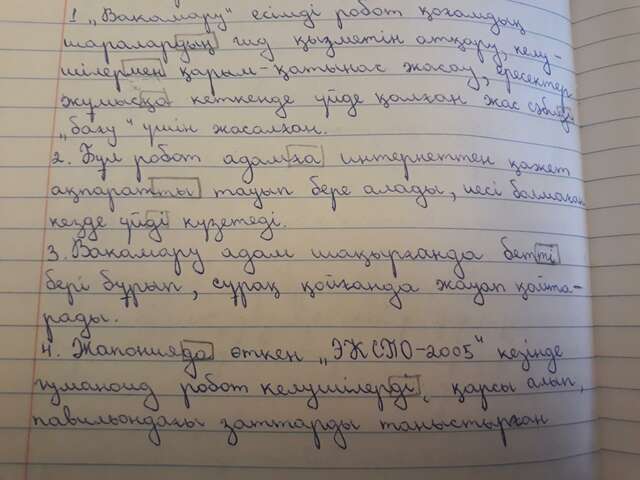 1 „Вакамару" есімді робот қоғамдық
шаралардың гид қызметін атқару, келу-
шілермен қарым-қатынас жасау, ересектер
жұмысқа кеткенде үйде қалған жас сәбиді
„бағу" үшін жасалған.
2. Бұл робот адамға интернеттен қажет
ақпаратты тауып бере алады, иесі болмаған
кезде үйді күзетеді.
3. Вакамару адам шақырғанда бетті
бері бұрып, сұрақ қойғанда жауап қайта-
рады.
4. Жапонияда өткен „ЭКСПО-2005" кезінде
гуманоид робот келушілерді, қарсы алып,
павильондағы заттарды таныстырған